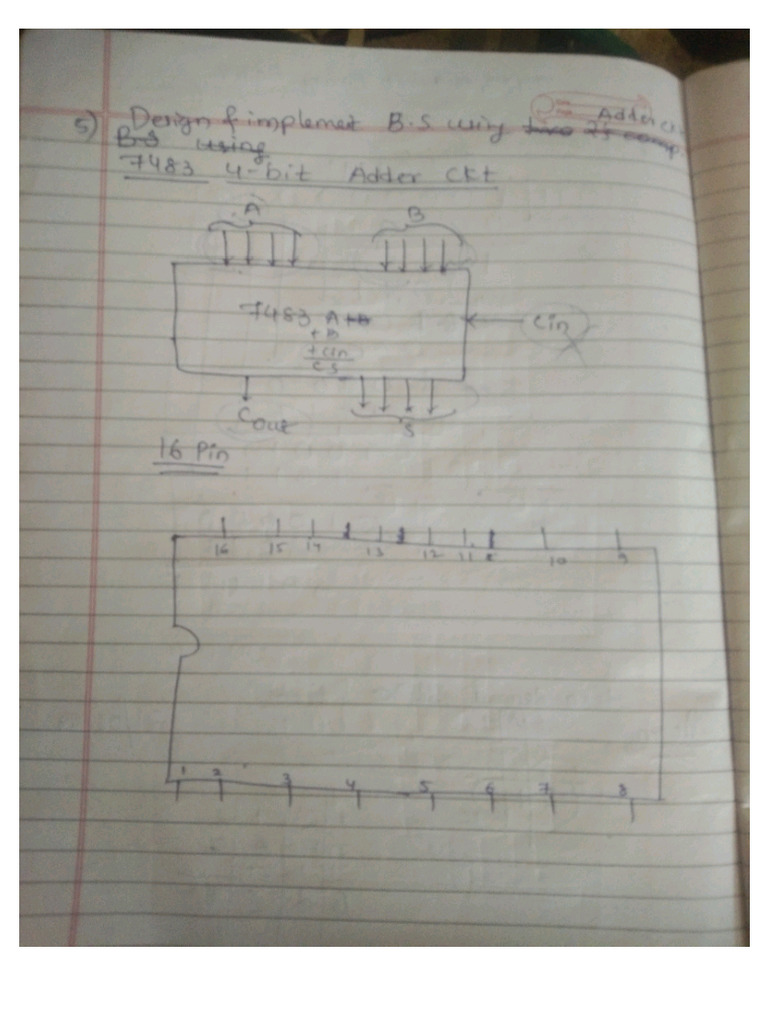 5) Design & implement B.S using Adder
B.S using
7483 4-bit Adder Ckt
A B
7483 A+B
+B
+Cin
CS
Cin
Cout
S
16 Pin
16 15 14 13 12 11 10 9
1 2 3 4 5 6 7 8